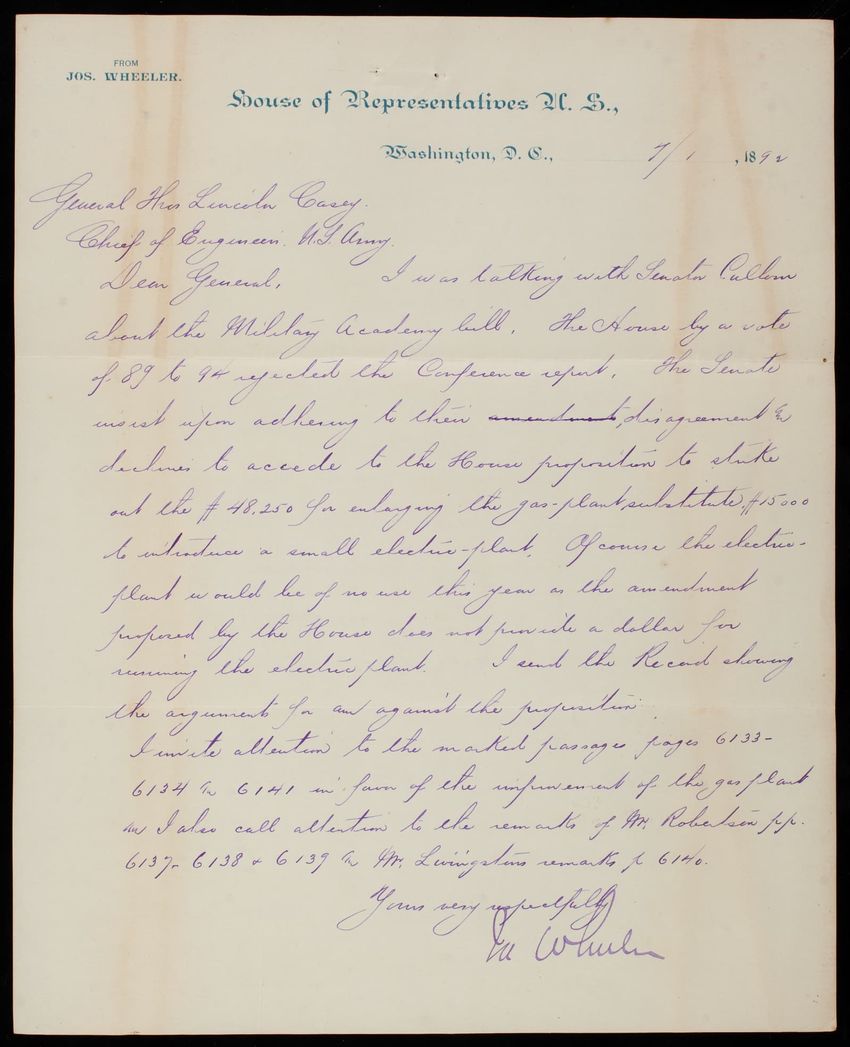 FROM
JOS. WHEELER.
House of Representatives U. S.,
Washington, D. C., 7/1, 1892
General Thos Lincoln Casey.
Chief of Engineers. U.S. Army.
Dear General, I was talking with Senator Cullom
about the Military Academy bill. The House by a vote
of 89 to 94 rejected the Conference report. The Senate
insist upon adhering to their amendments, disagreement &
declines to accede to the House proposition to strike
out the $48,250 for enlarging the gas-plant, substitute, $15000
to introduce a small electric-plant. Of course the electric-
plant would be of no use this year as the amendment
proposed by the House does not provide a dollar for
running the electric plant. I send the Record showing
the arguments for and against the proposition
I invite attention to the marked passages pages 6133-
6134 & 6141 in favor of the improvement of the gas plant
and I also call attention to the remarks of Mr. Robertson pp.
6137- 6138 & 6139 & Mr. Livingstons remarks p 6140.
Yours very respectfully
Jos Wheeler